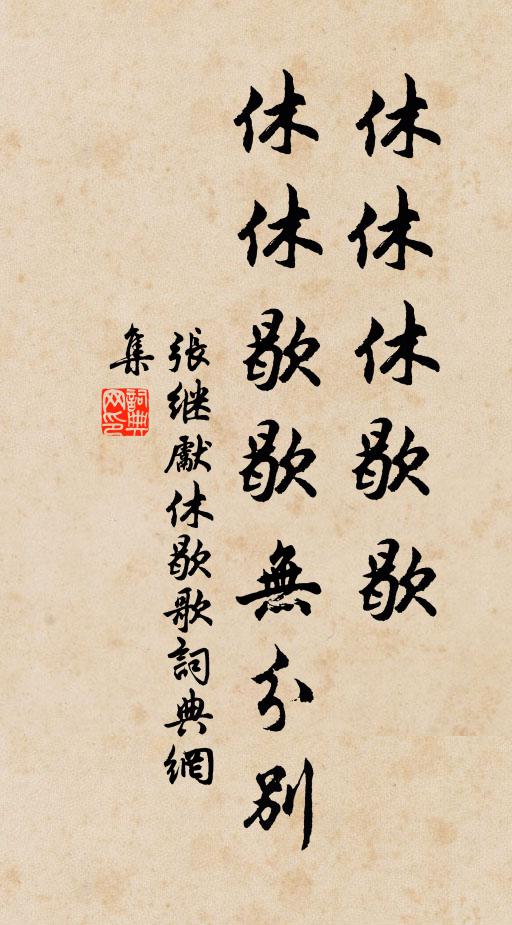 休休休歇歇
休休歇歇無分別
張継獻休歇歌詞典網
集
詞典网印